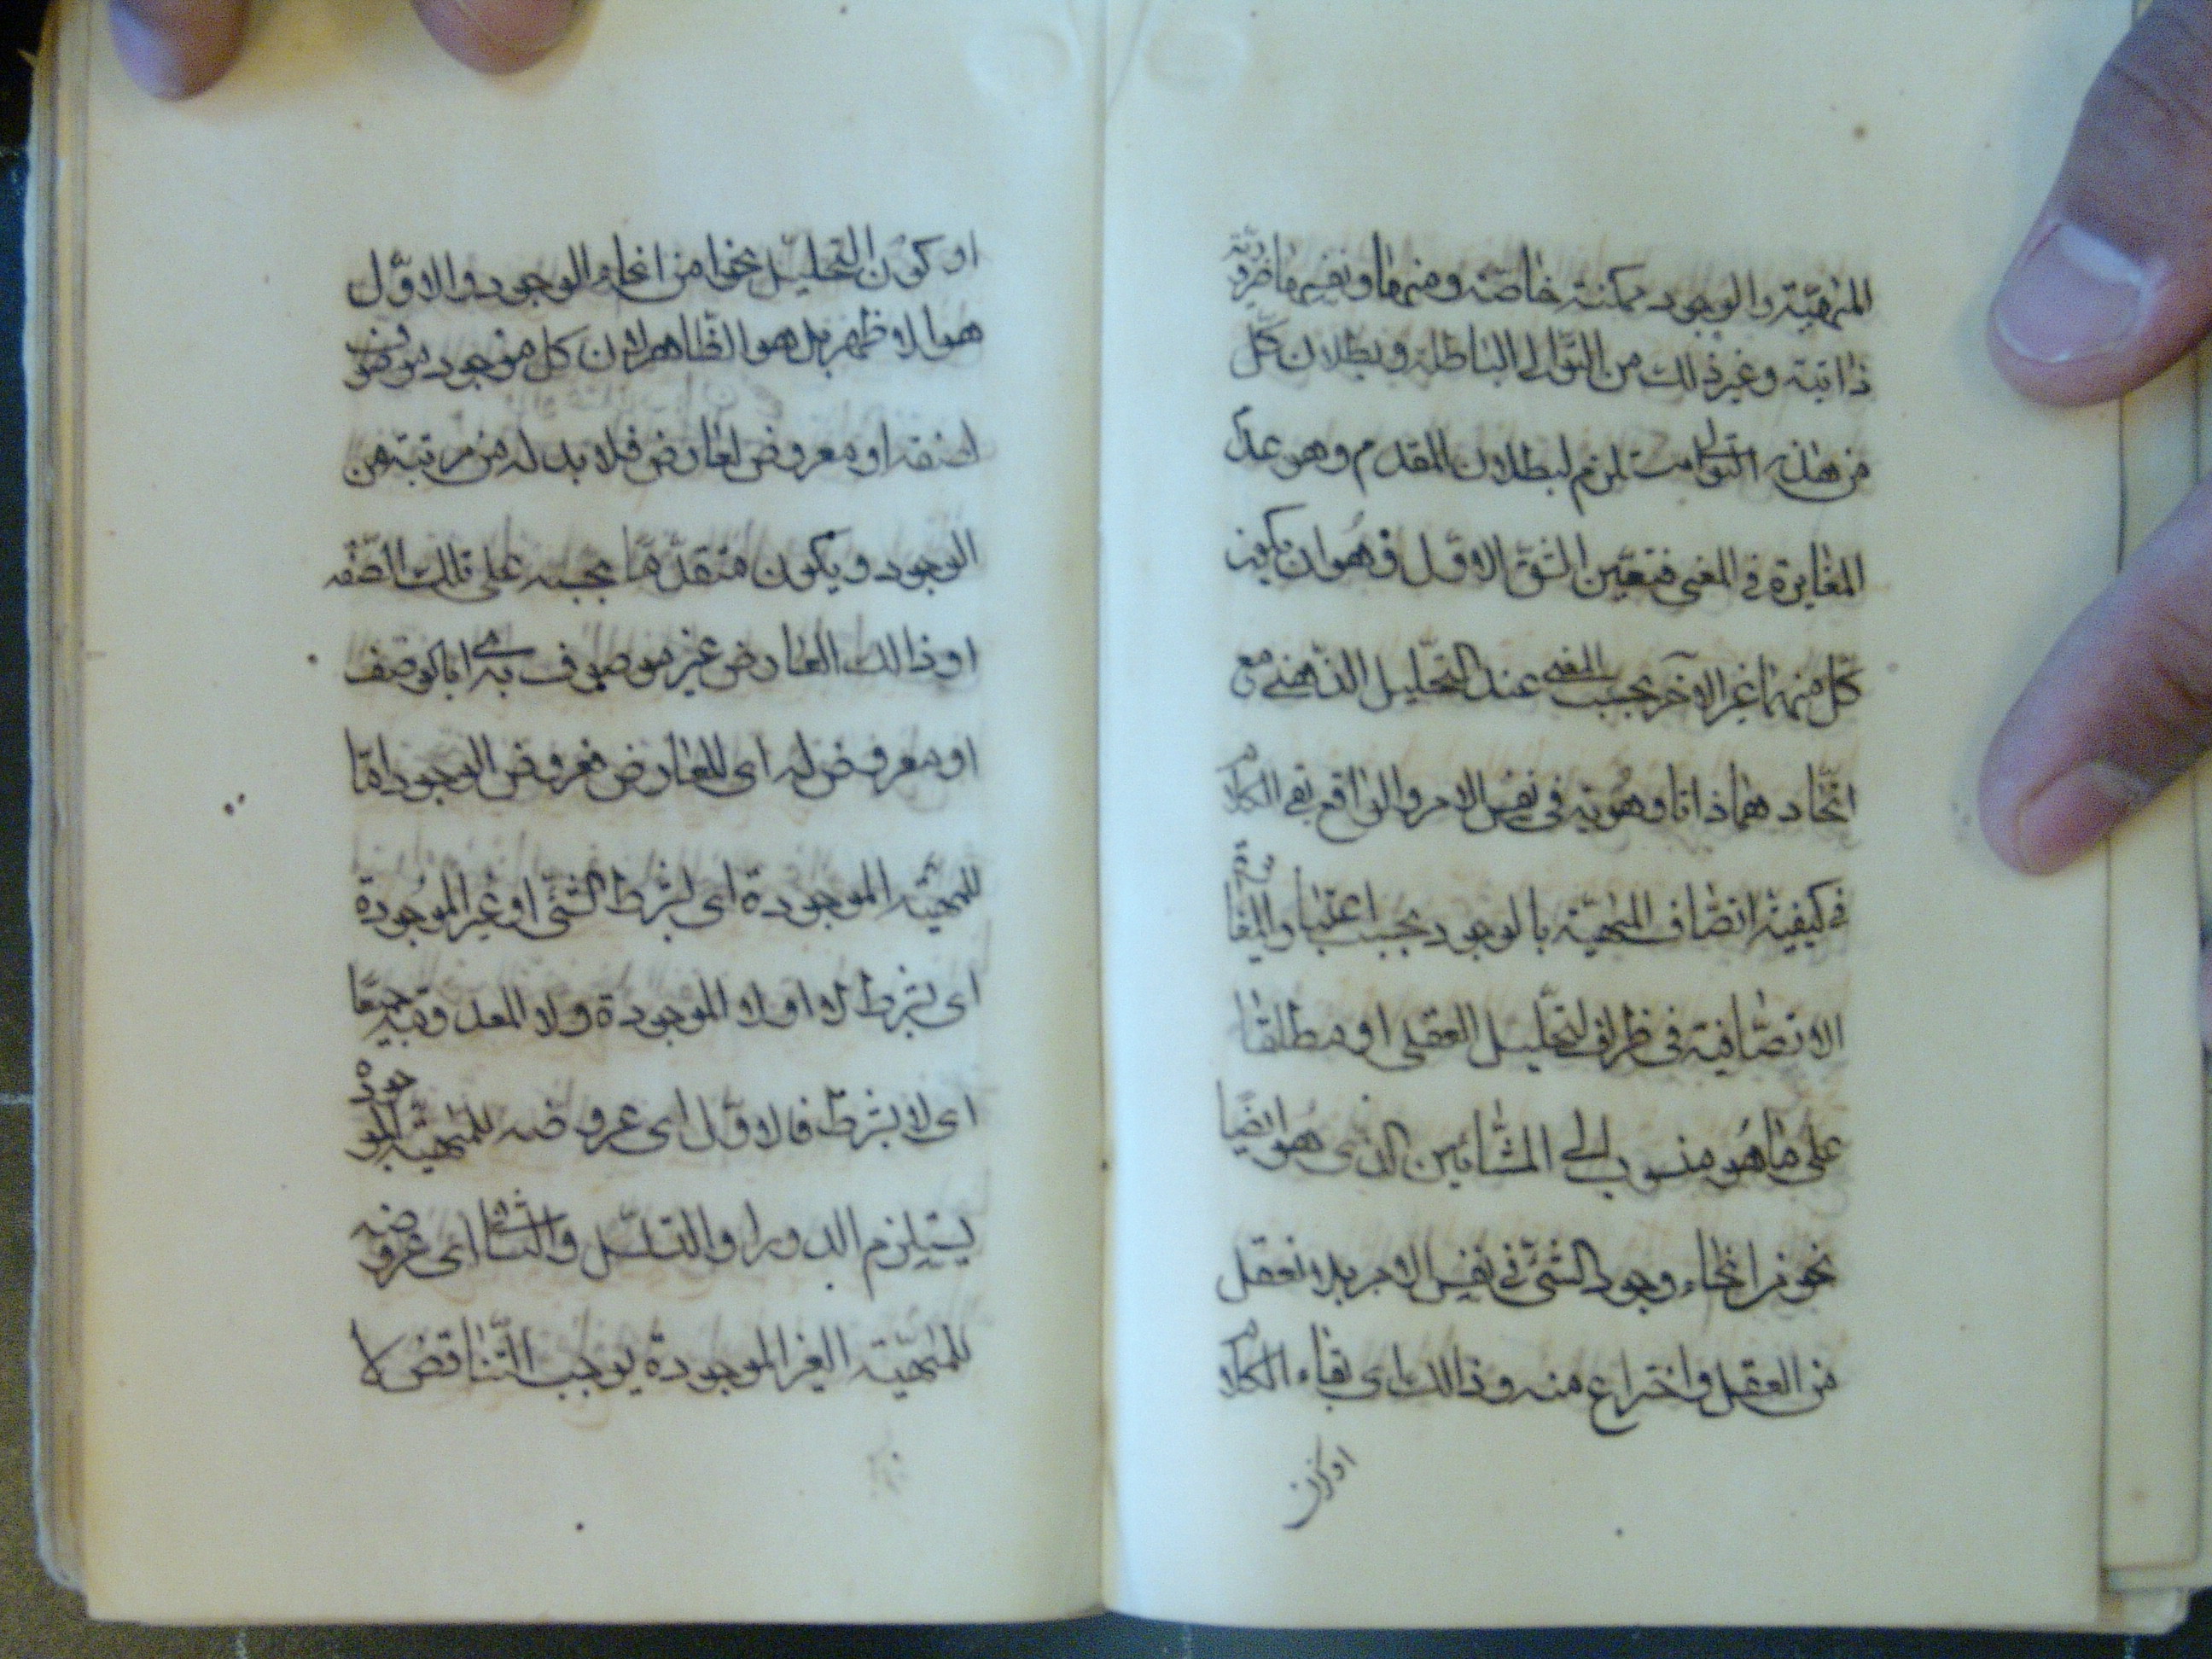 المهيّة والوجود ممكنة خاصّة ومنها ونفسها ضروريّة
ذاتية وغير ذلك من التّوالى الباطلة وبطلان كلّ
من هذه التوالى مستلزم لبطلان المقدم وهو عدم
المغايرة فى المعنى فتعيّن الشقّ الاوّل وهو ان يكون
كلّ منهما غير الآخر بحسب المعنى عند التحليل الذّهنى مع
اتّحادهما ذاتا وهويّة فى نفس الامر والواقع بقى الكلام
فى كيفيّة اتّصاف المهيّة بالوجود بحسب اعتبار المغايرة
الاتّصافية فى ظرف التحليل العقلى او مطلقا
على ما هو منسوب الى المشّائين الذى هو ايضًا
نحو من انحاء وجود الشّئ فى نفس الامر بلا تعقل
من العقل واختراع منه وذالك اى بقاء الكلام
او كون
او كون التحليل نحوا من انحاء الوجود والاوّل
هو الاظهر بل هو الظّاهر لان كل موجود موصوف
لصفة او معروض لعارض فلا بد له من مرتبة من
الوجود ويكون متقدّمًا بحسبه على تلك الصّفة
او ذالك العارض غير موصوف به اى بالوصف
او معروض له اى للعارض فعروض الوجود امّا
للمهيّة الموجودة اى بشرط الشّئ او غير الموجودة
اى بشرط لا او لا الموجودة ولا المعدومة جميعًا
اى لا بشرط فالاوّل اى عروضه للمهيّة الموجودة
يستلزم الدور او التسلسل والثانى اى عروضه
للمهيّة الغير الموجودة يوجب التّناقض لا